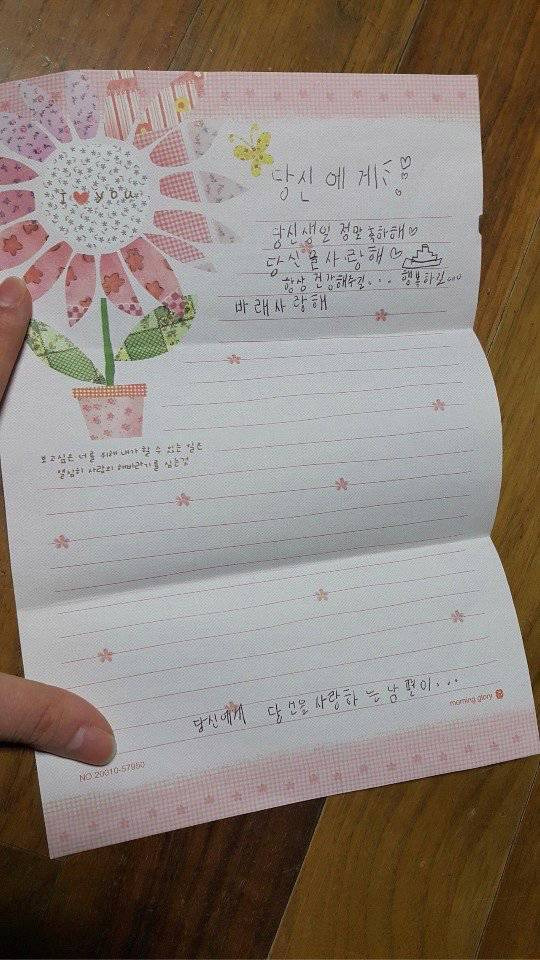 I ♥ YOU
당신에게
당신생일 정말 축하해♡
당신을사랑해♡
항상 건강해주길... 행복하길...
바래사랑해
보고싶은 너를 위해 내가 할 수 있는 일은
열심히 사랑의 해바라기를 심는것
당신에게 당신을사랑하는남편이...
morning glory
NO.20010-57950